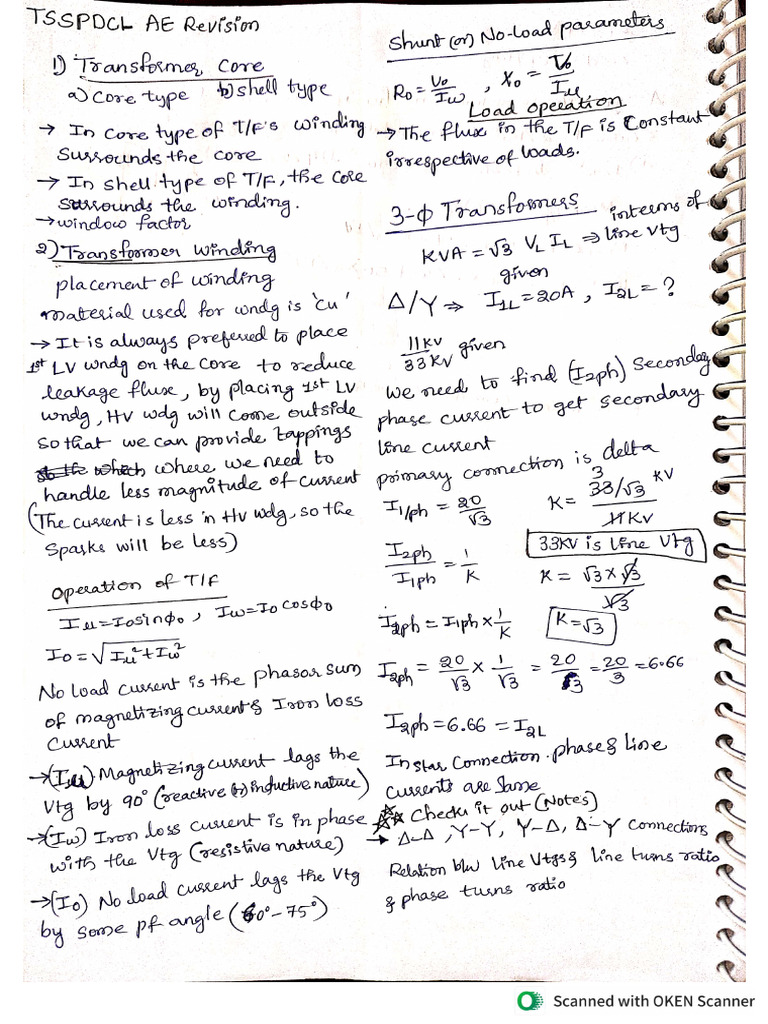 TSSPDCL AE Revision
1) Transformer Core
a) Core type b) shell type
→ In core type of T/F's winding
surrounds the core
→ In shell type of T/F, the core
surrounds the winding.
→ window factor
2) Transformer winding
placement of winding
material used for wndg is 'Cu'
→ It is always preferred to place
1st LV wndg on the core to reduce
leakage flux, by placing 1st LV
wndg, HV wdg will come outside
so that we can provide tappings
which where we need to
handle less magnitude of current
(The current is less in HV wdg, so the
sparks will be less)
Operation of T/F
Iμ = I0 sinφ0 , Iω = I0 cosφ0
I0 = √Iμ² + Iω²
No load current is the phasor sum
of magnetizing current & Iron loss
current
→ (Iμ) Magnetizing current lags the
Vtg by 90° (reactive (or) inductive nature)
→ (Iω) Iron loss current is in phase
with the Vtg (resistive nature)
→ (I0) No load current lags the Vtg
by some pf angle (60° - 75°)
Shunt (or) No-load parameters
R0 = V0/Iω , X0 = V0/Iμ
Load operation
→ The flux in the T/F is Constant
irrespective of loads.
3-ϕ Transformers
KVA = √3 VL IL ⇒ interms of line Vtg
given
Δ/Y ⇒ I1L = 20A , I2L = ?
11KV/33KV given
We need to find (I2ph) Seconday
phase current to get secondary
line current
primary connection is delta
I1/ph = 20/√3 K = 33/√3 KV / 11KV
3
33KV is line Vtg
I2ph/I1ph = 1/K K = √3 x √3/√3
I2ph = I1ph x 1/K K = √3
I2ph = 20/√3 x 1/√3 = 20/3 = 20/3 = 6.66
I2ph = 6.66 = I2L
In star Connection. phase & line
currents are same
Check it out (Notes)
→ Δ-Δ, Y-Y, Y-Δ, Δ-Y connections
Relation b/w line Vtgs & line turns ratio
& phase turns ratio
Scanned with OKEN Scanner